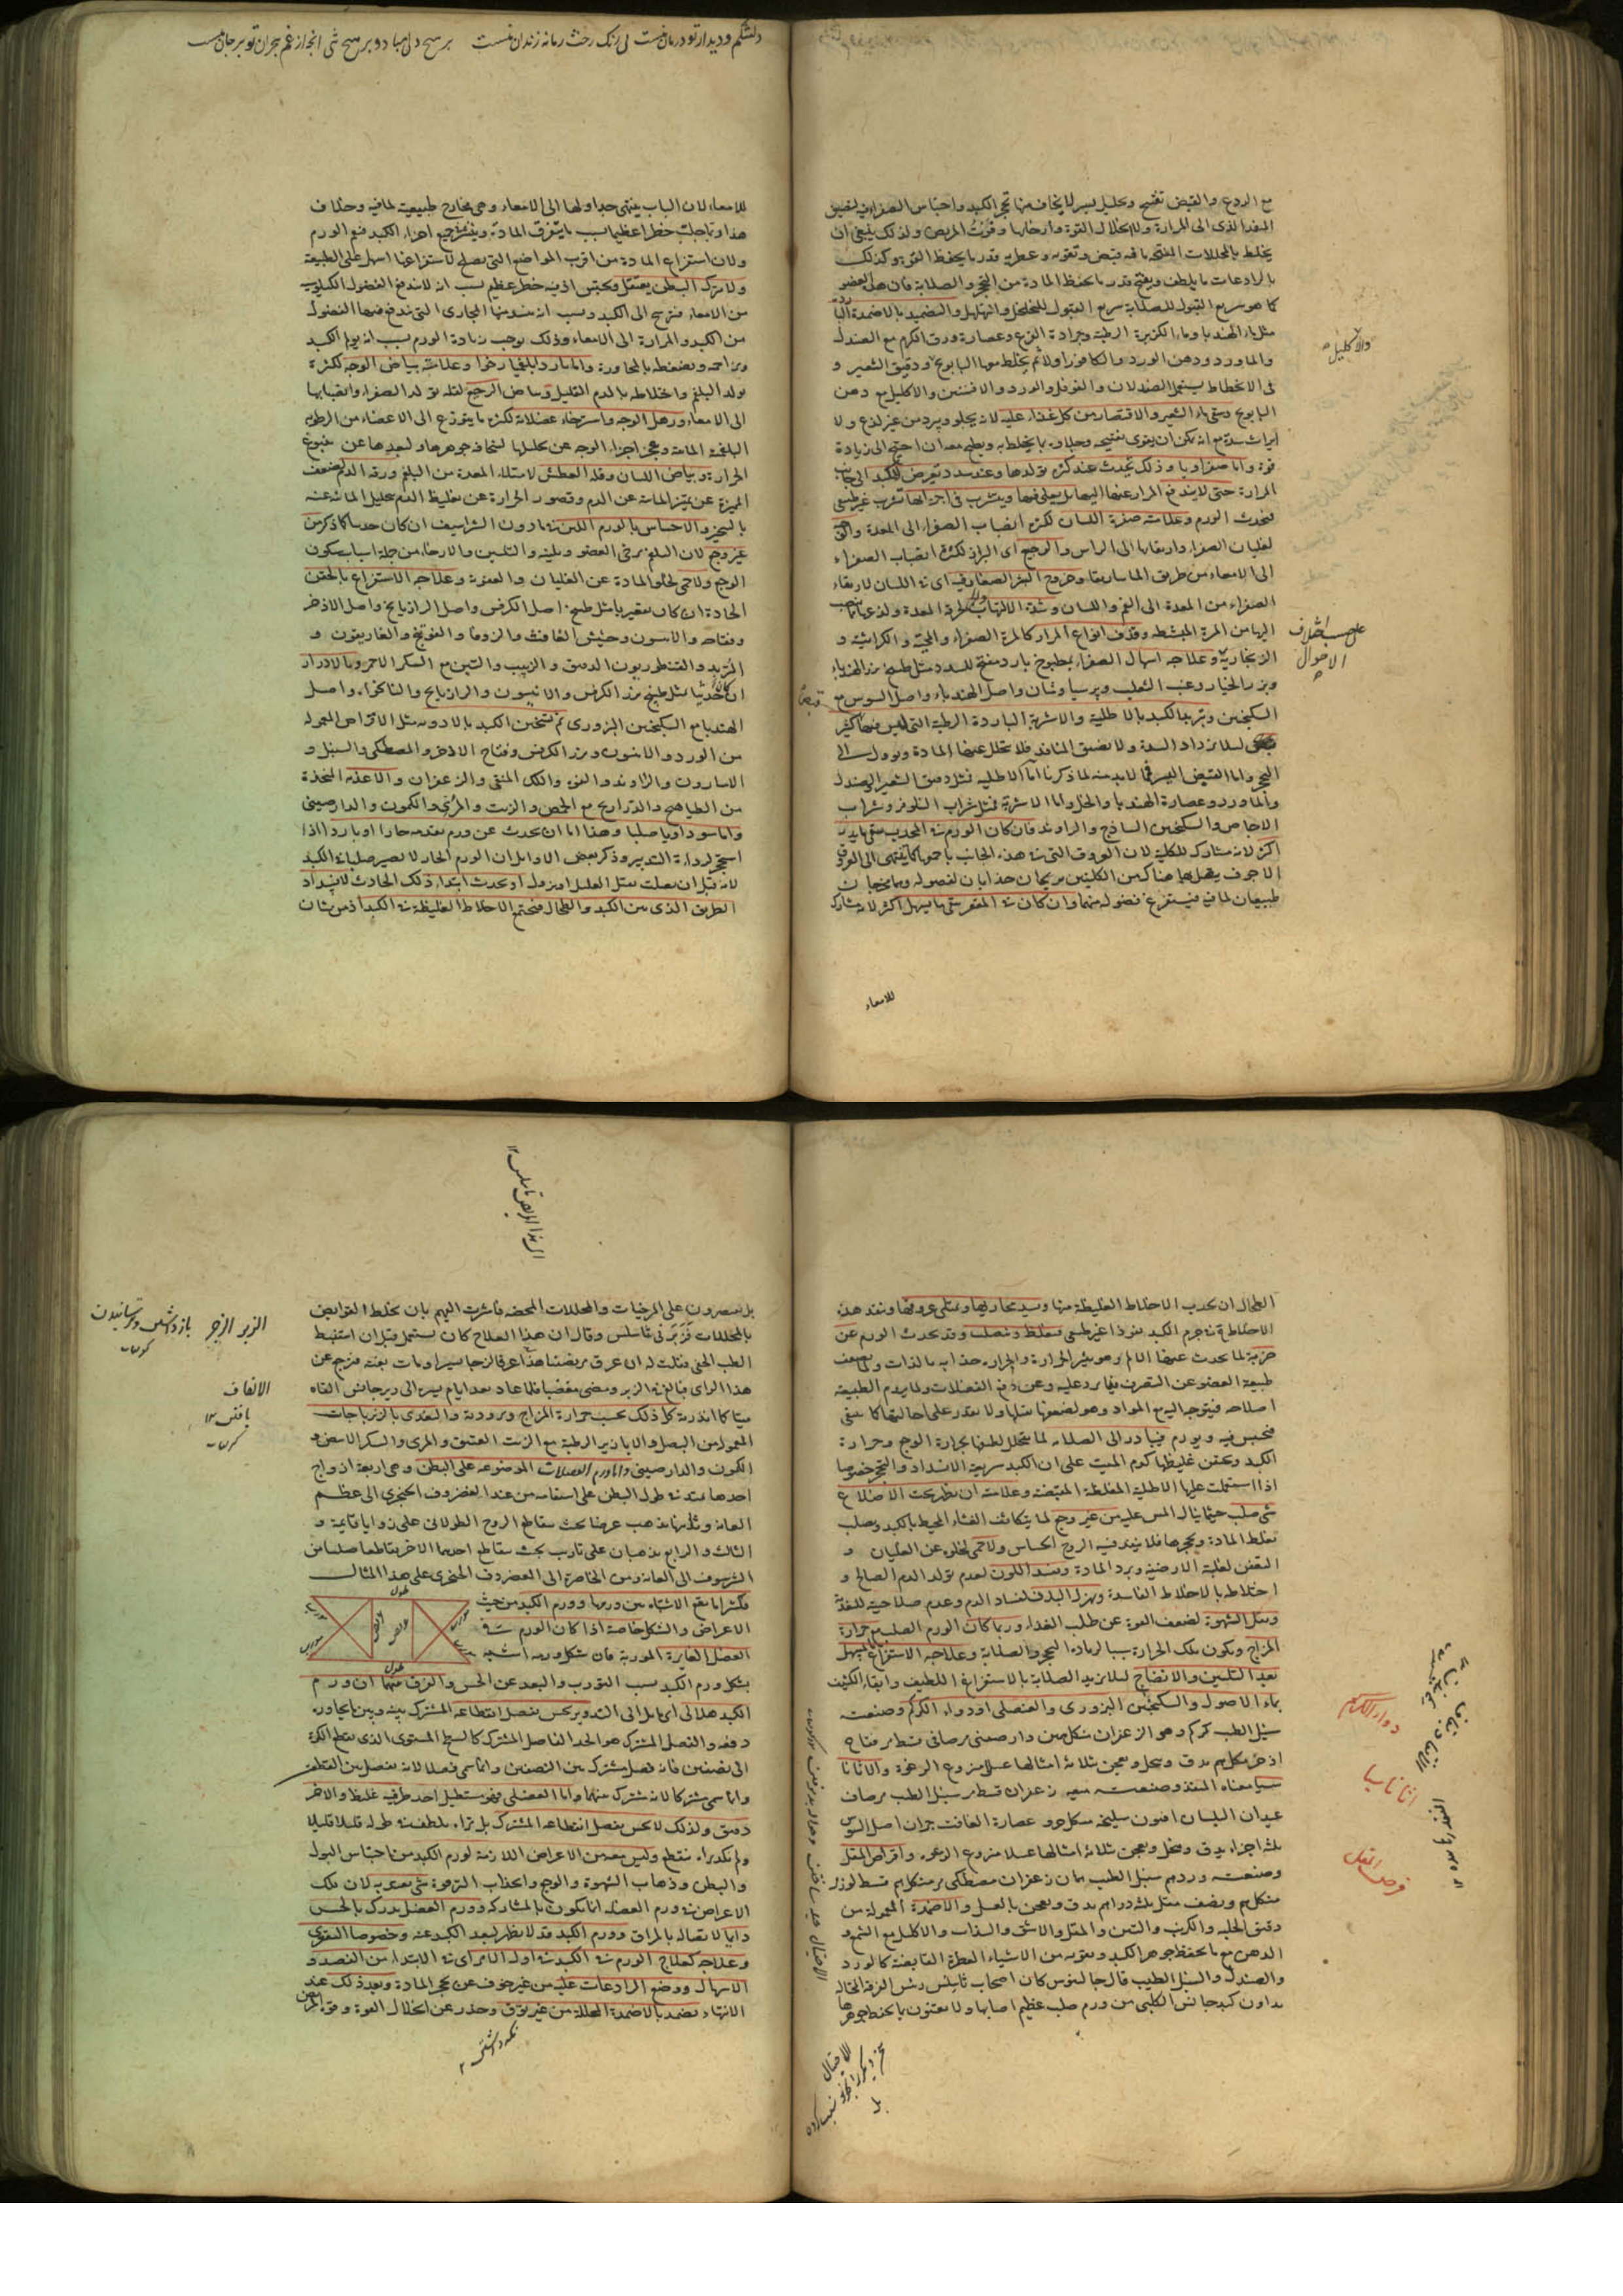 مع الردع والقبض تفتيح وتحليل يسير لا يخاف منها تحجر الكبد واحتباس الصفراء فيه لضيق
المنفذ الذي الى المرارة ولا انحلال القوة وارخاءها وقرنت المريض ولذلك ينبغي ان
يخلط بالمحللات المفتحة ما فيه قبض وتقوية وعطرية قدر ما يحفظ القوة وكذلك
بالرادعات ما يلطف ويفتح قدر ما يحفظ المادة من التحجر والصلابة فان هذا العضو
كما هو سريع القبول للصلابة سريع القبول للتخلخل والتهلهل والتضميد بالاضمدة الباردة
مثل ماء الهندبا وماء الكزبرة الرطبة وجرادة القرع وعصارة ورق الكرم مع الصندل
والماورد ودهن الورد والكافور اولا ثم يخلط معها البابونج ودقيق الشعير و
في الانحطاط يستعمل الصندلان والفوفل والورد والافسنتين والاكليل مع دهن
البابونج وسقي ماء الشعير والاقتصار من كل غذاء عليه لانه يجلو ويبرد من غير لذع ولا
ايراث سدة مع انه يمكن ان يقوى تفتيحه وجلاؤه بما يخلط به ويطبخ معه ان احتيج الى زيادة
قوة واما صفراويا وذلك يحدث عند كثرة تولدها وعند سدة تعرض للكبد الى جانب
المرارة حتى لا يندفع المرار عنها اليها بل يبقى فيها ويتشرب في اجزائها تشربا غير طبيعي
فيحدث الورم وعلامته صفرة اللسان لكثرة انصباب الصفراء الى المعدة والقيء
لغليان الصفراء وارتقائها الى الراس والرجيع اي البراز لكثرة انصباب الصفراء
الى الامعاء من طريق الماساريقا وخروج البثر الصغار فيه اي في اللسان لارتقاء
الصفراء من المعدة الى الفم واللسان وشدة الالتهاب لحرقة المعدة ولذعها بما ينصب
اليها من المرة المتشيطة وقذف انواع المرار كالمرة الصفراء والمحية والكراثية و
الزنجارية وعلاجه اسهال الصفراء بمطبوخ بارد مفتح للسدد مثل طبيخ بزر الهندباء
وبزر الخيار وعنب الثعلب وبرسياوشان واصل الهندباء واصل السوس مع
السكنجبين وتبريد الكبد بالاطلية والاشربة الباردة الرطبة التي ليس فيها كثير
قبض لئلا يزداد السدة ولا يضيق المنافذ فلا يتحلل عنها المادة ويؤول الى
التحجر واما القبض اليسير فمما لا بد منه لما ذكرنا اما الاطلية فمثل دقيق الشعير والصندل
والماورد وعصارة الهندبا والخل واما الاشربة فمثل شراب النيلوفر وشراب
الاجاص والسكنجبين الساذج والراوند فان كان الورم في المحدب سقي ما يدر
اكثر لانه مشارك للكلية لان العروق التي في هذا الجانب باجمعها كما ينتهي الى العرق
الاجوف يتصل بها هناك من الكليتين بربخان حذابان لفضوله وهما مخرجان
طبيعيان لما فيه فيستفرغ فضوله منهما وان كان في المقعر سقي ما يسهل اكثر لانه مشارك
للامعاء
والاكليل
على حسب اختلاف
الاحوال
قبض
دلتنگم و دیدار تو درمان منست بی رنگ رخت زمانه زندان منست بر هیچ دلی مبادا و بر هیچ تنی آنچ از غم هجران تو بر جان منست
للامعاء لان الباب ينتهي جداولها الى الامعاء وهي مخارج طبيعية لما فيه وخلاف
هذا ربما جلب خطرا عظيما بسبب ما يتفرق المادة وينتشر في جميع اجزاء الكبد فيعم الورم
ولان استفراغ المادة من اقرب المواضع التي يصلح لاستفراغها اسهل على الطبيعة
ولا يترك البطن يعتقل ويحتبس اذ فيه خطر عظيم بسب انه لا يندفع الفضول الكيلوسية
من الامعاء فترجع الى الكبد وبسبب انه ينسد منها المجاري التي يندفع فيها الفضول
من الكبد والمرارة الى الامعاء وذلك يوجب زيادة الورم بسبب انه يؤلم الكبد
ويزاحمه ويضغطه بالمجاورة واما باردا بلغميا رخوا وعلامته بياض الوجه لكثرة
تولد البلغم واختلاطه بالدم القليل وبياض الرجيع لقلة تولد الصفراء وانصبابها
الى الامعاء وترهل الوجه واسترخاء عضلاته لكثرة ما يتوزع الى الاعضاء من الرطوبة
البلغمية المائية وعجز اجزاء الوجه عن تحليلها لسخافة جوهرها وبعدها عن ينبوع
الحرارة وبياض اللسان وقلة العطش لامتلاء المعدة من البلغم ورقة الدم لضعف
المميزة عن تميز المائية عن الدم وقصور الحرارة عن تغليظ الدم بتحليل المائية عنه
بالتبخير والاحساس بالورم اللين فيما دون الشراسيف ان كان حدبيا كما ذكر من
غير وجع لان البلغم يرخي العضو ويلينه والتليين والارخاء من جملة اسباب سكون
الوجع ولا حمى لخلو المادة عن الغليان والعفونة وعلاجه الاستفراغ بالحقن
الحادة ان كان مقعريا مثل طبيخ اصل الكرفس واصل الرازيانج واصل الاذخر
وفقاحه والانيسون وحشيش الغافث والزوفا والفوتنج والغاريقون و
التربد والقنطوريون الدقيق والزبيب والتين مع السكر الاحمر وبالادرار
ان كان حدبيا مثل طبيخ بزر الكرفس والانيسون والرازيانج والنانخواه واصل
الهندبا مع السكنجبين البزوري ثم تسخين الكبد بالادوية مثل الاقراص المعمولة
من الورد والانيسون وبزر الكرفس وفقاح الاذخر والمصطكي والسنبل و
الاسارون والراوند والفوة واللك المنقى والزعفران والاغذية المتخذة
من الطياهيج والدراريج مع الحمص والزيت والمري والكمون والدارصيني
واما سوداويا صلبا وهذا اما ان يحدث عن ورم تقدمه حارا او باردا اذا
استحجر لرداءة التدبير وذكر بعض الاوائل ان الورم الحار لا يصير صلبا في الكبد
لانه قبل ان يصلب يقتل العليل او يزول او يحدث ابتداء ذلك الحادث لانسداد
الطريق الذي بين الكبد والطحال فيحتبس الاخلاط الغليظة في الكبد اذ من شان
الطحال ان يجذب الاخلاط الغليظة منها ويسد مجاريها ويمتلي عروقها وينفذ هذه
الاخلاط في جرم الكبد نفوذا غير طبيعي فيغلظ ويصلب وقد يحدث الورم عن
ضربة لما يحدث عنها الالم وهو مثير للحرارة والحرارة جذابة بالذات ولما يضعف
طبيعة العضو عن التصرف فيما يرد عليه وعن دفع الفضلات ولما يروم الطبيعة
اصلاحه فيتوجه اليه مع المواد وهو لضعفه يقبلها ولا يقدر على احالتها كما ينبغي
فيحتبس فيه ويورم فيبادر الى الصلابة لما يتحلل لطيفها بحرارة الوجع وحرارة
الكبد ويحتقن غليظها كدم الميت على ان الكبد سريعة الانسداد والتحجر خصوصا
اذا استعملت عليها الاطلية المغلظة المقبضة وعلامته ان يظهر تحت الاضلاع
شيء صلب حيثما ينال اللمس عليه من غير وجع لما يتكاثف الغشاء المحيط بالكبد ويصلب
لغلظ المادة وتحجرها فلا ينفذ فيه الروح الحساس ولا حمى لخلوه عن الغليان و
التعفن لغلبة الارضية وبرد المادة وفساد اللون لعدم تولد الدم الصالح و
اختلاطه بالاخلاط الفاسدة وهزل البدن لفساد الدم وعدم صلاحيته للتغذية
وبطل الشهوة لضعف القوة عن طلب الغذاء وربما كان الورم الصلب مع حرارة
المزاج ويكون تلك الحرارة سببا لزيادة التحجر والصلابة وعلاجه الاستفراغ بالمسهل
بعد التليين والانضاج لئلا يزيد الصلابة بالاستفراغ اللطيف وابقاء الكثيف
بماء الاصول والسكنجبين البزوري والعنصلي او دواء الكركم وصنعته
سنبل الطيب كركم وهو الزعفران دارصيني مر صافي قسط مر فقاح
اذخر يدق وينخل ويعجن بثلاثة امثالها عسل منزوع الرغوة والاثاناسيا
معناه المنقذ وصنعته ميعة زعفران قسط مر سنبل الطيب مر صاف
عيدان البلسان افيون سليخة عصارة الغافث اصل السوس
ثلثة اجزاء يدق وينخل ويعجن بثلاثة امثالها عسلا منزوع الرغوة واقراص المقل
وصنعته ورد سنبل الطيب زعفران مصطكي مر قسط لوز مر
مثقال ونصف مقل ثلثة دراهم يدق ويعجن بالعسل والاضمدة المعمولة من
دقيق الحلبة والكرنب والتين والمقل والاشق والسذاب والاكليل مع الشمع و
الدهن مع ما يحفظ جوهر الكبد ويقويه من الاشياء العطرة القابضة كالورد
والصندل والسنبل الطيب قال جالينوس كان اصحاب ثاسلس رئيس الفرقة المحتالة
يداوون كبد جاش الكلبي من ورم صلب عظيم اصابها ولا يعتنون بما يحفظ جوهرها
بل
دواء الكركم
اثاناسيا
قرص المقل
بل يقتصرون على المرخيات والمحللات المحضة فاشرت اليهم بان يخلط القوابض
بالمحللات فزبرني ثاسلس وقال ان هذا العلاج كان يستعمل قبل ان استنبط
الطب الحيلي فقلت له ان عرق مريضنا هذا عرقا لزجا يسيرا ومات بغتة فرجع عن
هذا الراي فبالغ في الزبر ومضى مغضبا فلما عاد بعد ايام يسيرة الى دير جاش الفاه
ميتا كما انذرت به كل ذلك بحسب حرارة المزاج وبرودته والتغذي بالزيرباجات
المعمولة من البصل والابازير الرطبة مع الزيت العتيق والمري والسكر الابيض و
الكمون والدارصيني واما ورم العضلات الموضوعة على البطن وهي اربعة ازواج
احدها يمتد في طول البطن على استقامة من عند الغضروف الحنجري الى عظم
العانة وثانيها يذهب عرضا بحيث يقاطع الزوج الطولاني على زوايا قائمة و
الثالث والرابع يذهبان على تاريب بحيث يقاطع احدهما الاخر تقاطعا صليبا من
الشرسوف الى العانة ومن الخاصرة الى الغضروف الحنجري على هذا المثال
فكثيرا ما يقع الاشتباه بين ورمها وورم الكبد من حيث
الاعراض والشكل خاصة اذا كان الورم في
العضل الغائرة المورية فان شكل ورمه اشبه
بشكل ورم الكبد بسبب التورب والبعد عن الحس والفرق بينهما ان ورم
الكبد هلالي اي مائل الى التدوير يحس بفصل انقطاعه المشترك بينه وبين ما يجاوره
دفعة والفصل المشترك هو الحد الفاصل المشترك كالسطح المستوي الذي يقطع الكرة
الى نصفين فانه فصل مشترك بين النصفين وانما سمي فصلا لانه يفصل بين القطعتين
وانما سمي مشتركا لانه مشترك بينهما واما العضلي فهو مستطيل احد طرفيه غليظ والاخر
دقيق ولذلك لا يحس بفصل انقطاعه المشترك بل تراه يلطف في طوله قليلا قليلا
ولم يكد يراه ينقطع وليس معه من الاعراض اللازمة لورم الكبد من احتباس البول
والبطن وذهاب الشهوة والوجع وانجذاب الترقوة شيء يعتد به لان تلك
الاعراض في ورم العضلة انما يكون بالمشاركة وورم العضل يدرك بالحس
دائما لاتصاله بالمراق وورم الكبد قد لا يظهر لبعد الكبد عنه وخصوصا المقعري
وعلاجه كعلاج الورم في الكبد في اول الامر اي في الابتداء من الفصد و
الاسهال ووضع الرادعات عليه من غير خوف عن تحجر المادة وبعد ذلك عند
الانتهاء يضمد بالاضمدة المحللة من غير توق وحذر عن انحلال القوة
طول
عرض
عرض
طول
الزبر الزجر
الالفاء
یافتن